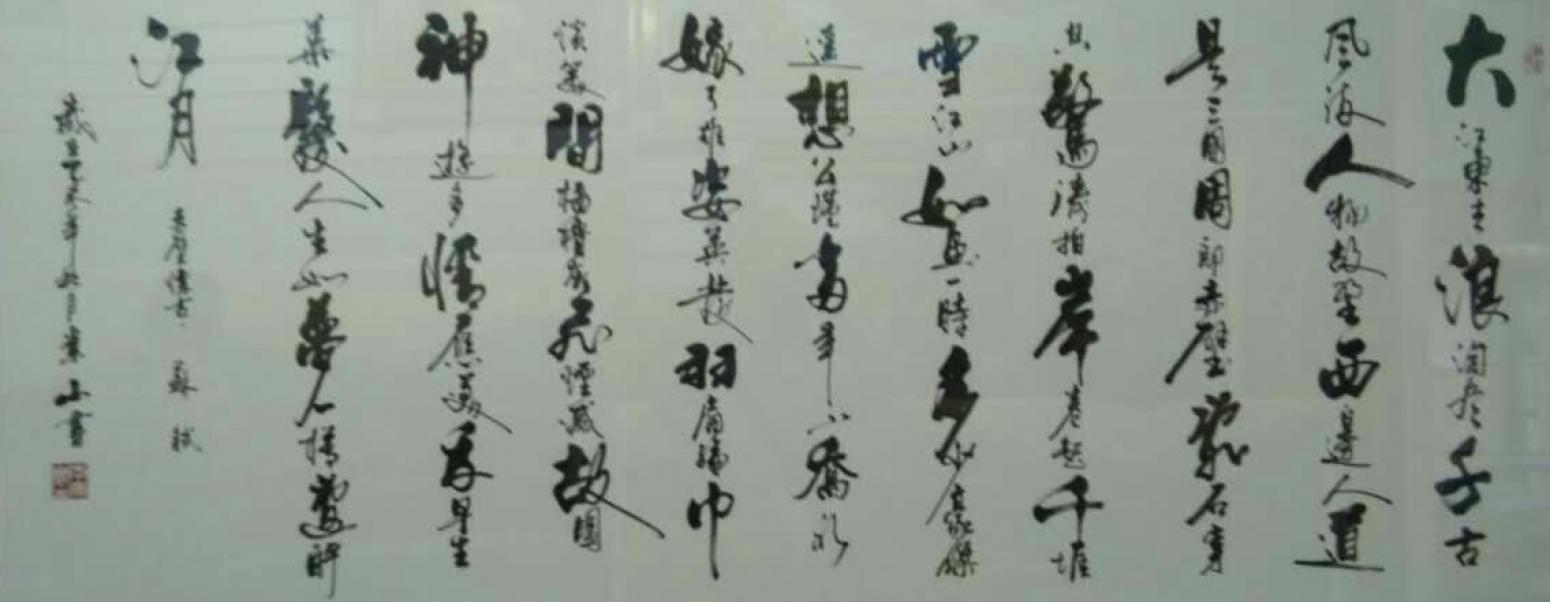 大江東去浪淘尽千古
风流人物故垒西邊人道
是三國周郎赤壁亂石穿
空驚濤拍岸卷起千堆
雪江山如画一時多少豪傑
遥想公瑾當年小喬初
嫁了雄姿英發羽扇綸巾
談笑間檣櫓灰飛煙滅故國
神遊多情應笑我早生
華髮人生如夢一樽還酹
江月 赤壁懷古 蘇軾
歲在乙未年秋月 山書